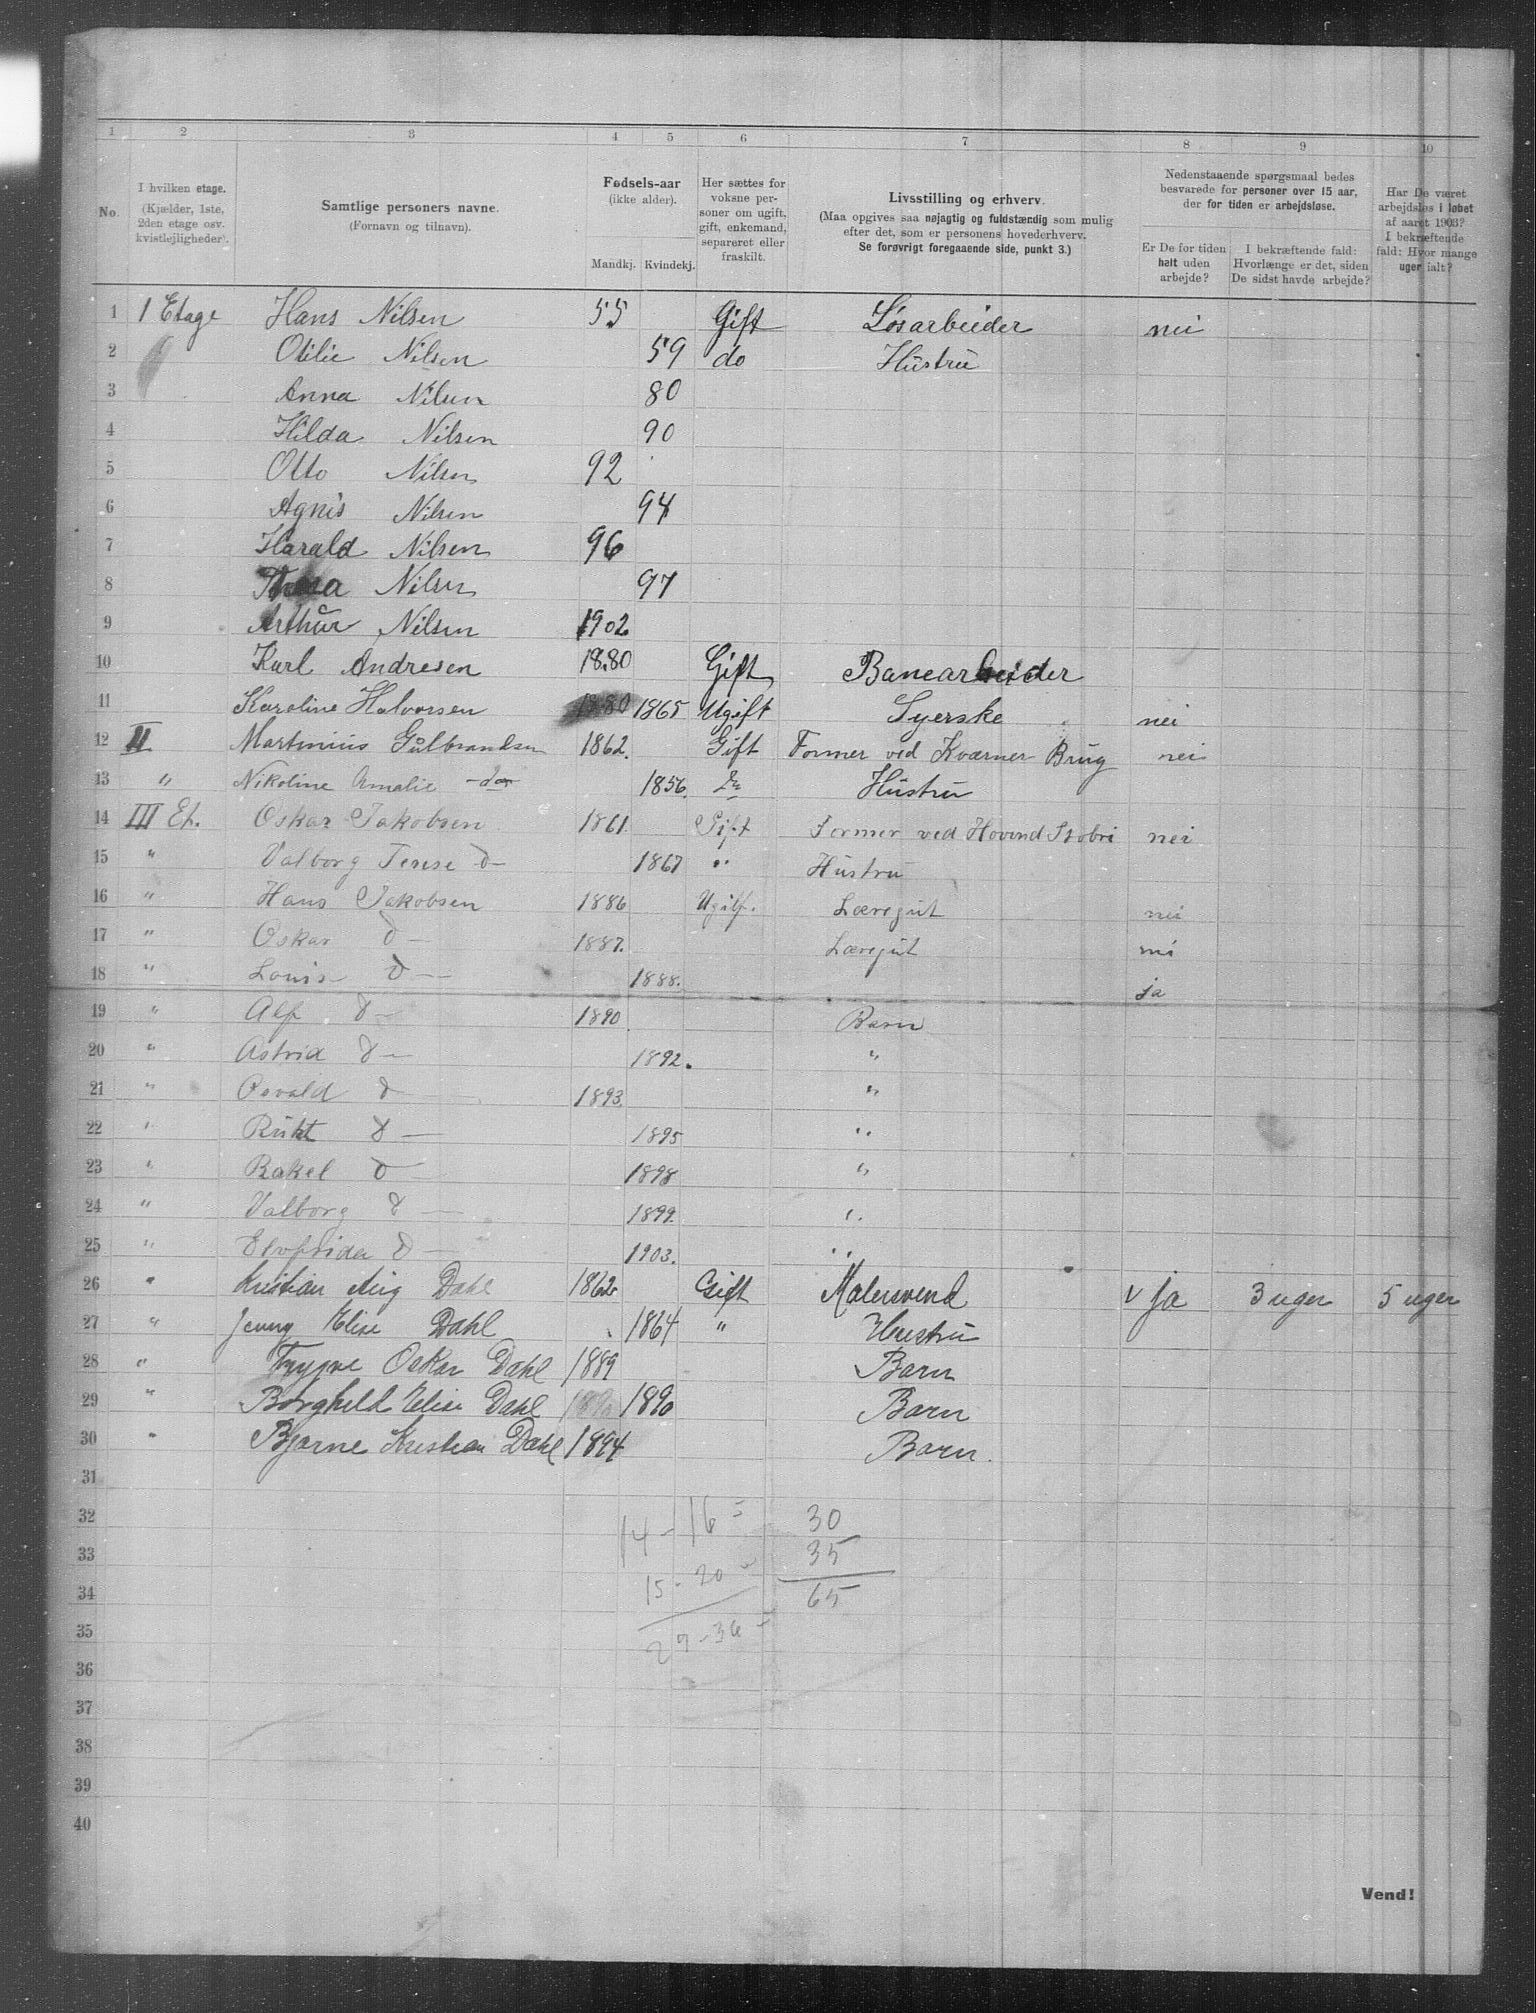 1 2 3 4 5 6 7 8 9 10
No.
I hvilken etage.
(Kjælder, 1ste,
2den etage osv.
kvistlejligheder).
Samtlige personers navne.
(Fornavn og tilnavn).
Fødsels-aar
(ikke alder).
Mandkj. Kvindekj.
Her sættes for
voksne per-
soner om ugift,
gift, enkemand,
separeret eller
fraskilt.
Livsstilling og erhverv.
(Maa opgives saa nøjagtig og fuldstændig som mulig
efter det, som er personens hovederhverv.
Se forøvrigt foregaaende side, punkt 3.)
Nedenstaaende spørgsmaal bedes
besvarede for personer over 15 aar,
der for tiden er arbejdsløse.
Er De for tiden
helt uden
arbejde?
I bekræftende fald:
Hvorlænge er det, siden
De sidst havde arbejde?
Har De været
arbejdsløs i løbet
af aaret 1903?
I bekræftende
fald: Hvor mange
uger ialt?
1 1 Etage Hans Nilsen 55 Gift Løsarbeider nei
2 Otilie Nilsen 59 do Hustru
3 Anna Nilsen 80
4 Hilda Nilsen 90
5 Otto Nilsen 92
6 Agnis Nilsen 94
7 Harald Nilsen 96
8 Nilsen 97
9 Arthur Nilsen 1902
10 Karl Andresen 1880 Gift Banearbeider
11 Karoline Halvorsen 1880 1865 Ugift Syerske nei
12 II Martinius Gulbrandsen 1862. Gift Former ved Kværner Brug nei
13 " Nikoline Amalie -do- 1856. Do Hustru
14 III Et. Oskar Jakobsen 1861. Gift Former ved Hovind Stobri nei
15 " Valborg Terese D- 1867 " Hustru
16 " Hans Jakobsen 1886 Ugift. Læregut nei
17 " Oskar D- 1887. Læregut nei
18 " Louis D- 1888. ja
19 " Alf D- 1890 Barn
20 " Astrid D- 1892. "
21 " Osvald D- 1893. "
22 " D- 1895 "
23 " Rakel D- 1898 "
24 " Valborg D- 1899. "
25 " D- 1903. "
26 " Kristian Aug Dahl 1862 Gift Malersvend v ja 3 uger 5 uger
27 " Jenny Elise Dahl 1864 " Hustru
28 " Trygve Oskar Dahl 1889 Barn
29 " Borghild Elise Dahl 1890 1890 Barn
30 " Bjarne Kristian Dahl 1894 Barn.
31
32 14 - 16 = 30
33 15 - 20 = 35
34 65
35 29 - 36 =
36
37
38
39
40
Vend!